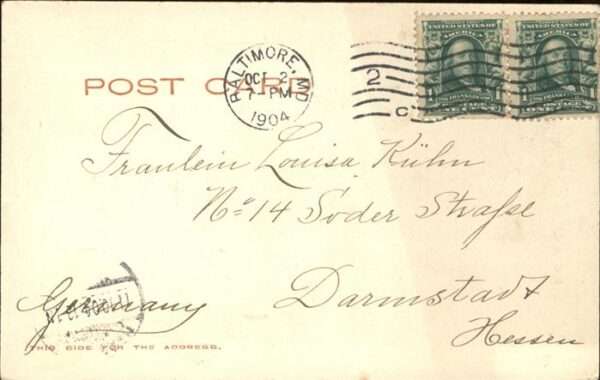 POST CARD
BALTIMORE, MD
OCT 2
7-PM
1904
2
C
UNITED STATES OF AMERICA
UNITED STATES OF AMERICA
Fraulein Louisa Kühn
No 14 Soder Straſse
Darmstadt
Hessen
Germany
THIS SIDE FOR THE ADDRESS.